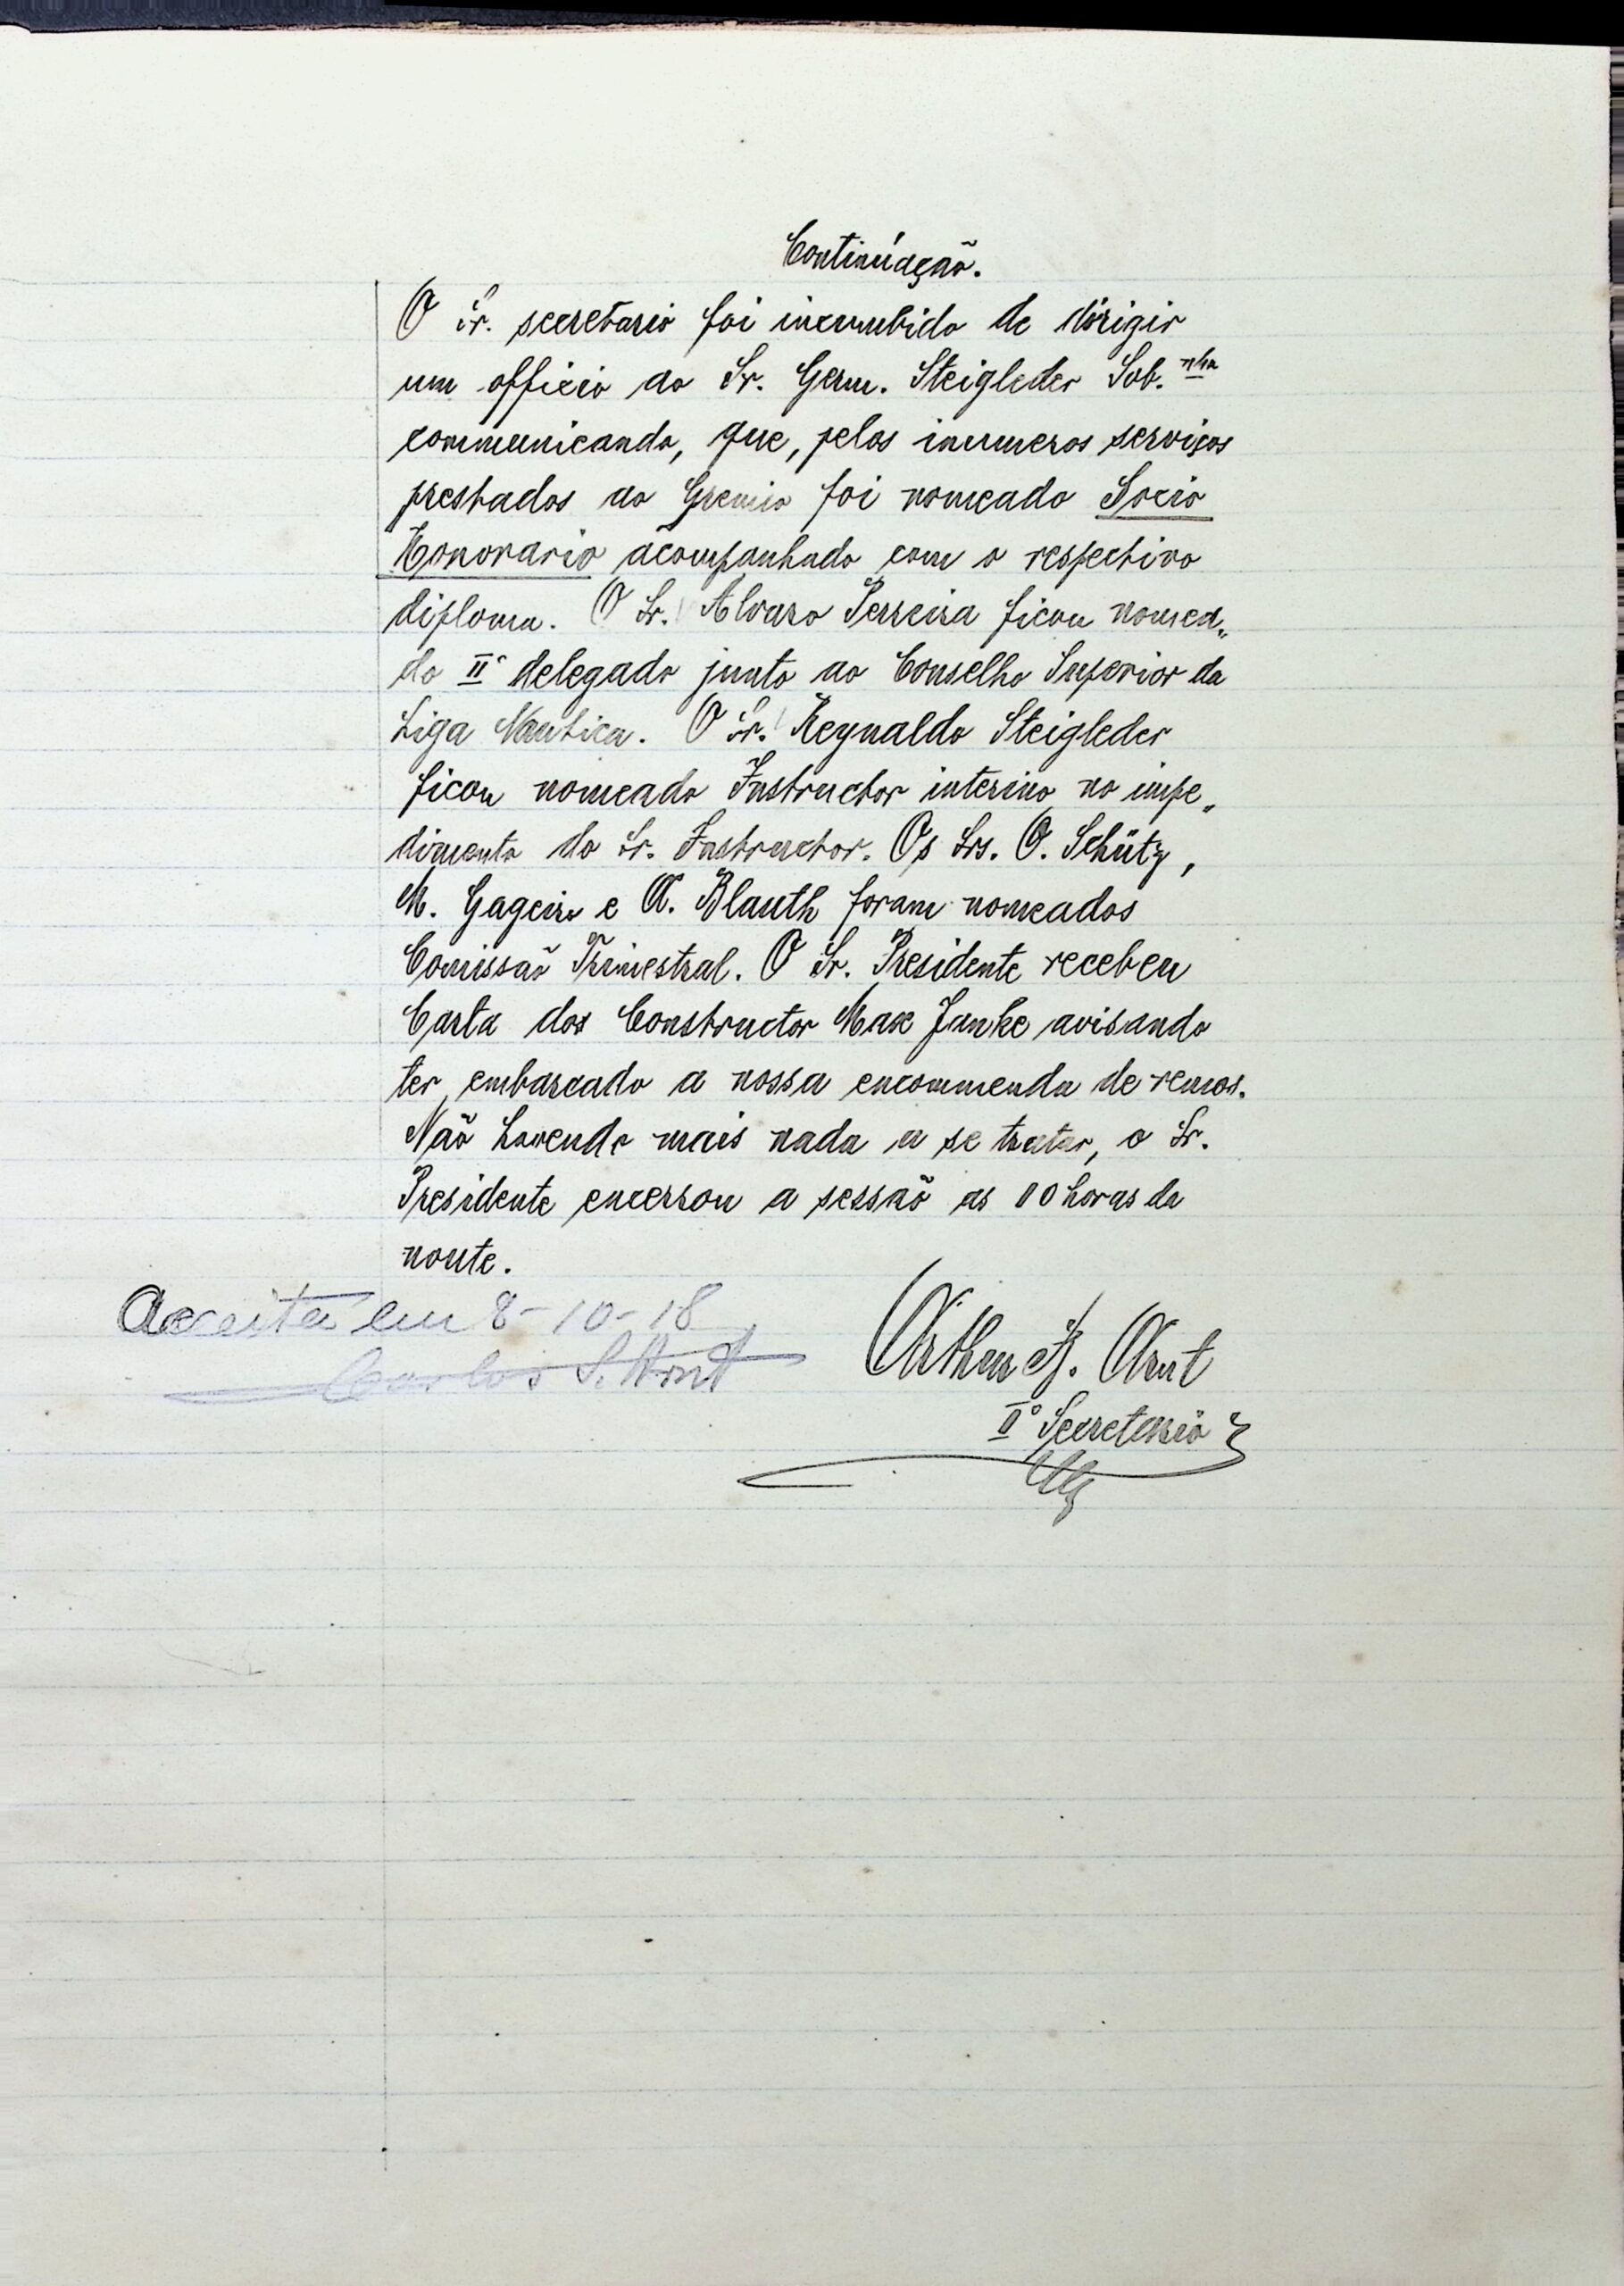 Continúação.
O Sr. secretario foi incumbido de dirigir
um officio ao Sr. Germ. Steigleder Sob.nho
communicando, que, pelos inumeros serviços
prestados ao Gremio foi nomeado Socio
Honorario acompanhado com o respectivo
diploma. O Sr. Alvaro Ferreira ficou nomea„
do II° delegado junto ao Conselho Superior da
Liga Nautica. O Sr. Reynaldo Steigleder
ficou nomeado Instructor interino no impe„
dimento do Sr. Instructor. Os Srs. O. Schütz,
M. Gageiro e A. Blauth foram nomeados
Comissão Trimestral. O Sr. Presidente recebeu
Carta dos Constructor Max Janke avisando
ter embarcado a nossa encommenda de remos.
Não havendo mais nada a se tratar, o Sr.
Presidente encerrou a sessão as 10 horas da
noute.
Acceita em 8-10-18
Carlos S. Arnt
Arthur A. Arnt
II° Secretario